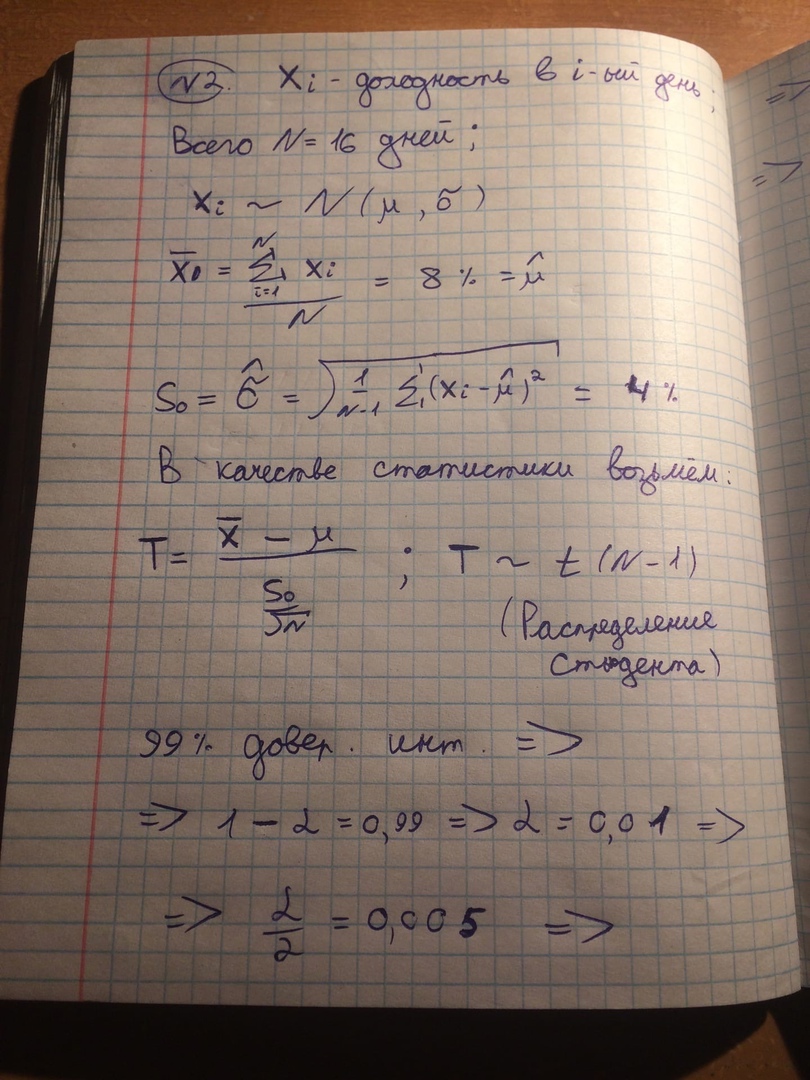 №2. Xi - доходность в i-ый день;
Всего N = 16 дней;
Xi ~ N(μ, σ)
X̄₀ = (∑_{i=1}^{N} Xi) / N = 8% = μ̂
S₀ = σ̂ = √(1/(N-1) ∑(Xi - μ̂)²) = 4%
В качестве статистики возьмём:
T = (X̄ - μ) / (S₀/√N) ; T ~ t(N-1)
(Распределение
Стьюдента)
99% довер. инт. =>
=> 1 - α = 0,99 => α = 0,01 =>
=> α/2 = 0,005 =>
=>
=>